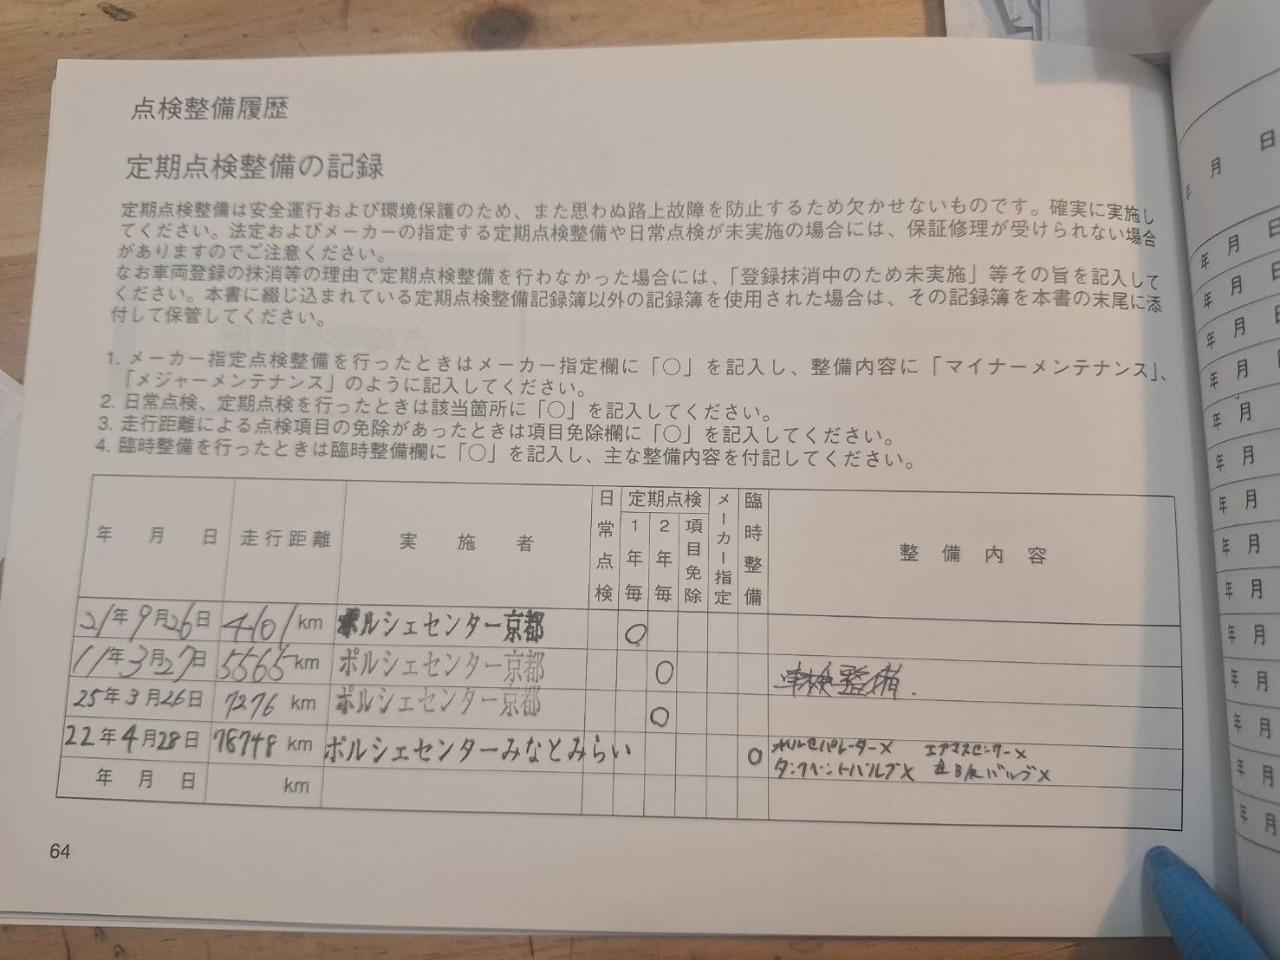 点検整備履歴
定期点検整備の記録
定期点検整備は安全運行および環境保護のため、また思わぬ路上故障を防止するため欠かせないものです。確実に実施し
てください。法定およびメーカーの指定する定期点検整備や日常点検が未実施の場合には、保証修理が受けられない場合
がありますのでご注意ください。
なお車両登録の抹消等の理由で定期点検整備を行わなかった場合には、「登録抹消中のため未実施」等その旨を記入して
ください。本書に綴じ込まれている定期点検整備記録簿以外の記録簿を使用された場合は、その記録簿を本書の末尾に添
付して保管してください。
1. メーカー指定点検整備を行ったときはメーカー指定欄に「○」を記入し、整備内容に「マイナーメンテナンス」、
「メジャーメンテナンス」のように記入してください。
2. 日常点検、定期点検を行ったときは該当箇所に「○」を記入してください。
3. 走行距離による点検項目の免除があったときは項目免除欄に「○」を記入してください。
4. 臨時整備を行ったときは臨時整備欄に「○」を記入し、主な整備内容を付記してください。
年 月 日 走行距離 実施者 日常点検 定期点検 1年毎 2年毎 項目免除 メーカー指定 臨時整備 整備内容
21年9月26日 4101km ポルシェセンター京都 ○
11年3月27日 5565km ポルシェセンター京都 ○ 車検整備.
25年3月26日 7276km ポルシェセンター京都 ○
22年4月28日 78748km ポルシェセンターみなとみらい ○ オイルセパレーター× エアマスセンサー×
タンクベントバルブ×
年 月 日 km
64
年 月 日
年 月 日
年 月 日
年 月 日
年 月
年 月
年 月
年 月
年 月
年 月
年 月
年 月
年 月
年 月
年 月